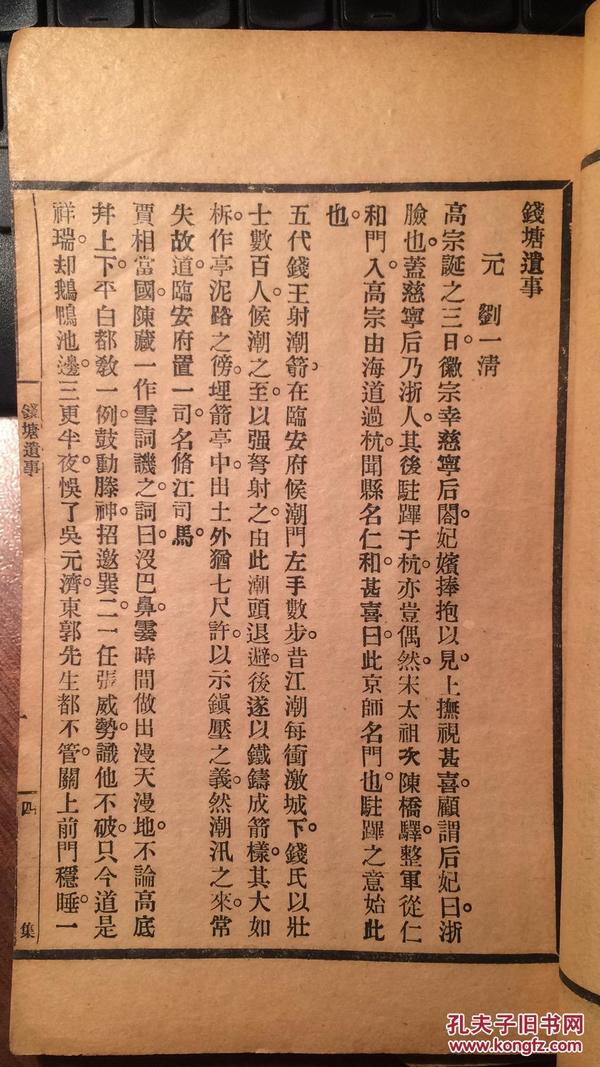 錢塘遺事
元 劉一淸
高宗誕之三日。徽宗幸慈寧后閤。妃嬪捧抱以見。上撫視甚喜。顧謂后妃曰。浙
臉也。蓋慈寧后乃浙人。其後駐蹕于杭。亦豈偶然。宋太祖次陳橋驛。整軍從仁
和門入。高宗由海道過杭。聞縣名仁和。甚喜曰。此京師名門也。駐蹕之意始此
也。
五代錢王射潮箭。在臨安府候潮門左手數步。昔江潮每衝激城下。錢氏以壯
士數百人。候潮之至。以强弩射之。由此潮頭退避。後遂以鐵鑄成箭樣。其大如
柝。作亭泥路之傍。埋箭亭中。出土外猶七尺許。以示鎭壓之義。然潮汛之來。常
失故道。臨安府置一司。名脩江司馬。
賈相當國。陳藏一作雪詞譏之。詞曰。沒巴鼻。霎時間做出漫天漫地。不論高底
幷上下。平白都敎一例。鼓動滕神。招邀巽二。一任張威勢。識他不破。只今道是
祥瑞。却鵝鴨池邊。三更半夜。悞了吳元濟。東郭先生都不管。關上前門穩睡。一
錢塘遺事
一
四
集
孔夫子旧书网
www.kongfz.com